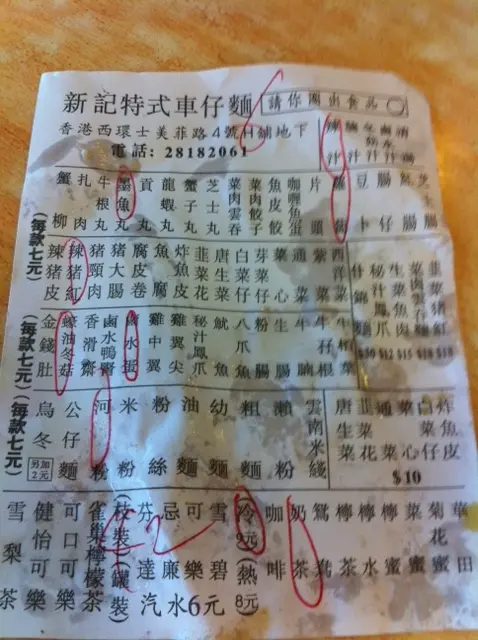 新記特式車仔麵
請你圈出食品
香港西環士美菲路4號H鋪地下
電話: 28182061
(每款七元)
蟹柳
扎肉
牛根丸
墨魚丸
貢丸
龍蝦丸
蟹子丸
芝士丸
菜肉雲吞
菜肉餃子
魚皮餃
咖喱魚蛋
片頭
豆卜
腸仔
芝士腸
(每款七元)
辣豬皮
辣豬紅
豬頸肉
豬大腸
腐皮卷
炸魚皮
韭菜花
唐生菜
白菜仔
菜心
通菜
紫菜
西洋菜
(每款七元)
金錢肚
蠔油冬菇
香滑齋
鹵水鴨腎
鹵水蛋
雞中翼
雞翼尖
秘汁鳳爪
魷魚
八爪魚
粉腸
生腸
牛腩
牛孖根
烏冬
另加2元
公仔麵
河粉
米粉
粉絲
油麵
幼麵
粗麵
瀨粉
雲南米線
唐生菜
韭菜花
通菜
菜心
白菜仔
炸魚皮
$10
雪梨茶
健怡可樂
可口可樂
雀巢檸檬茶
(枝裝)
(罐裝)
芬達
忌廉
可樂
雪碧
汽水6元
冷9元
(熱8元)
咖啡
奶茶
鴛鴦
檸茶
檸水
檸蜜
菜蜜
菊花蜜